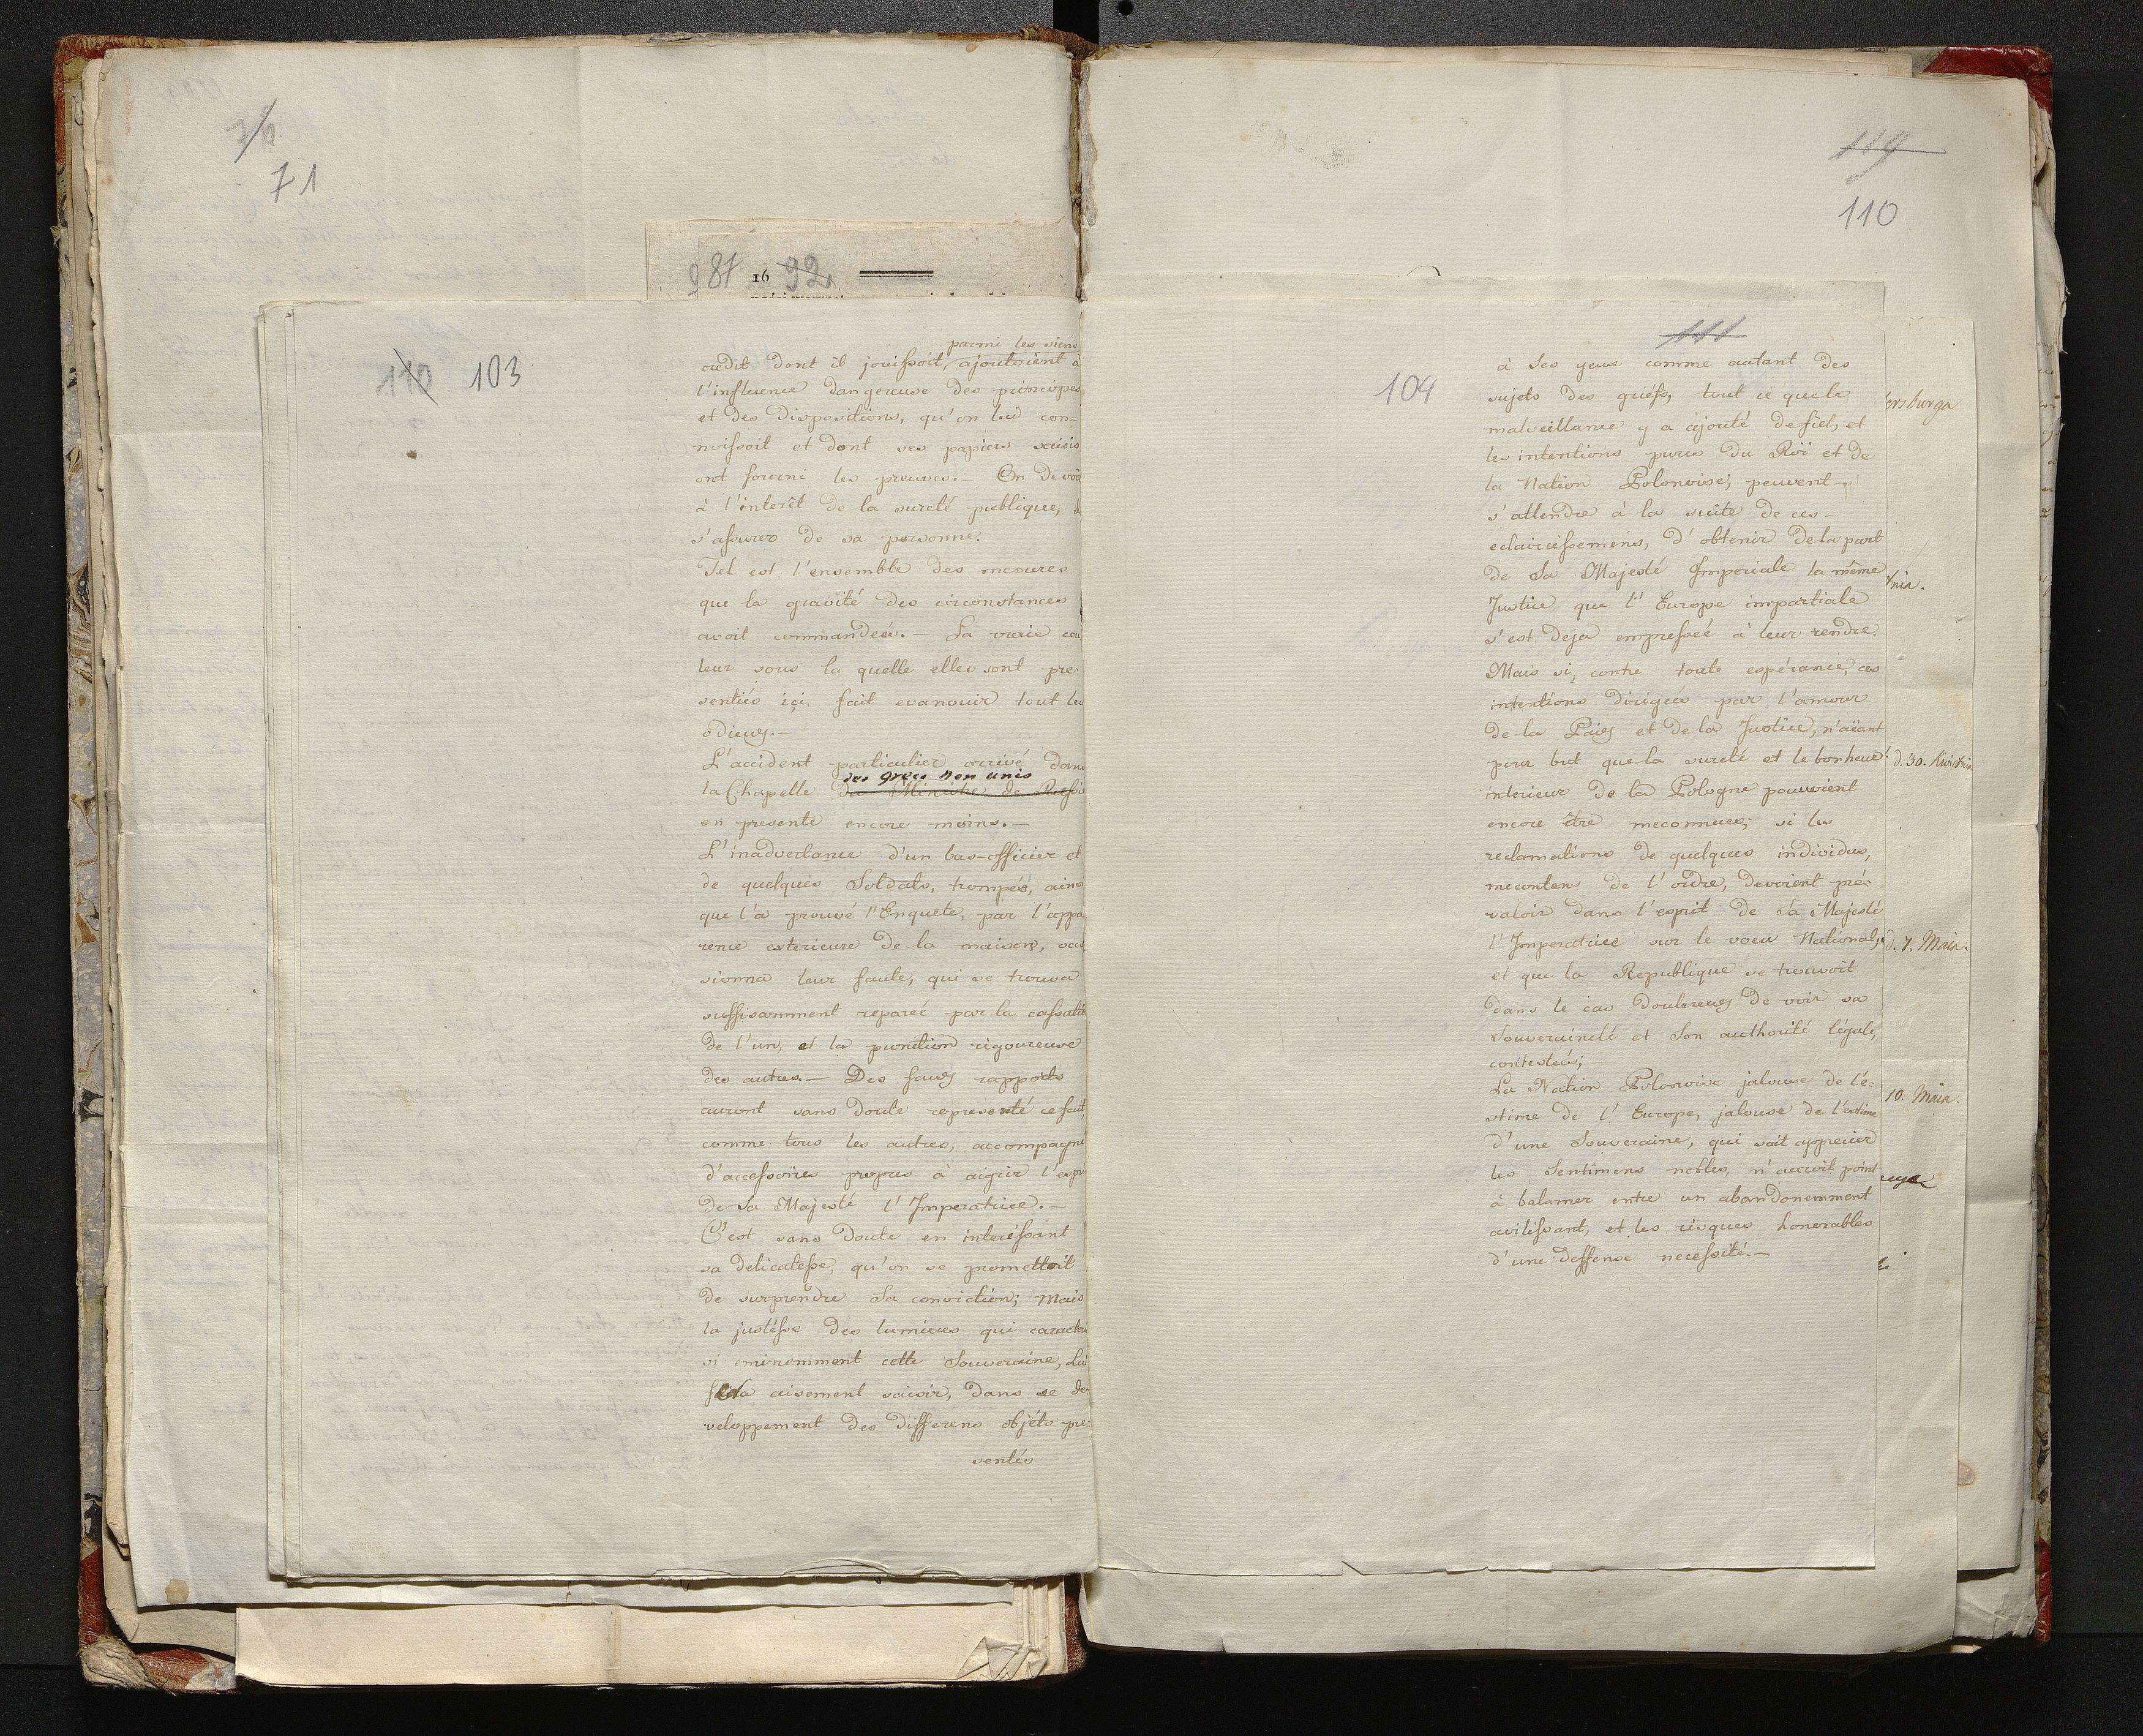 76
71
987 16 92
110 103
parmi les siens
crédit dont il jouissoit, ajoutoient à
l'influence dangereuse des principes
et des Dispositions, qu'on lui con=
noissoit et dont ses papiers saisis
ont fourni les preuves.— On devoit
à l'interêt de la sureté publique,
s'assurer de sa personne.
Tel est l'ensemble des mesures
que la gravité des circonstances
avoit commandées.— La vraie cou
leur sous la quelle elles sont pre-
sentiés içi, fait evanouir tout leu
odieux.—
L'accident particulier arrivé dans
des grecs non unis
la Chapelle du Ministre de Russie
en presente encore moins.—
L'inadvertance d'un bas-officier et
de quelques Soldats, trompés, ainsi
que l'a prouvé l'Enquete, par l'appa
rence exterieure de la maison, occa
sionna leur faute, qui se trouva
suffisamment reparée par la cassati
de l'un, et la punition rigoureuse
des autres.— Des faux rapports
auront sans doute representé ce fait
comme tous les autres, accompagné
d'accessoires propres à aigrir l'espr
de Sa Majesté l'Imperatrice.—
C'est sans Doute en interéssant
sa delicatesse, qu'on se promettoit
de surprendre Sa conviction; Mais
la justésse des lumieres qui caracter
si eminemment cette Souveraine, Lui
aisement saisir, dans ce de
veloppement des differens objéts pre=
sentés
119
110
111
104
à Ses yeux comme autant des
sujets des griéfs, tout ce que la
malveillance y a ajouté de fiel, et
les intentions pures du Roi et de
la Nation Polonoise, peuvent—
s'attendre à la suite de ces—
eclaircissemens, d'obtenir de la part
de Sa Majesté Imperiale la même
Justice que l'Europe impartiale
s'est deja empressée à leur rendre.
Mais si, contre toute espérance, ces
intentions dirigées par l'amour
de la Paix et de la Justice, n'aïant
pour but que la sureté et le bonheur
interieur de la Pologne pouvoient
encore être meconnues; si les
reclamations de quelques individus,
mecontens de l'ordre, devoient pré=
valoir dans l'esprit de Sa Majesté
l'Imperatrice sur le voeu National,
et que la Republique se trouvoit
dans le cas douloureux de voir sa
Souveraineté et Son authorité légale,
contestée;
La Nation Polonoise jalouse de l'é=
stime de l'Europe, jalouse de l'estime
d'une Souveraine, qui sait apprecier
les Sentimens nobles, n'auroit point
à balancer entre un abandonnemment
avilissant, et les risques honorables
d'une deffense necessité.—
ersburga
tnia.
d. 30. Kwietnia
d. 7. Maia.
10. Maia.